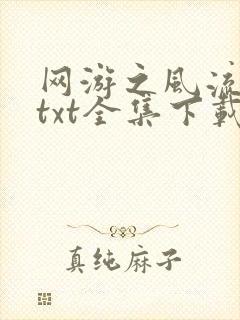 网游之风流
txt全集下载
真纯麻子